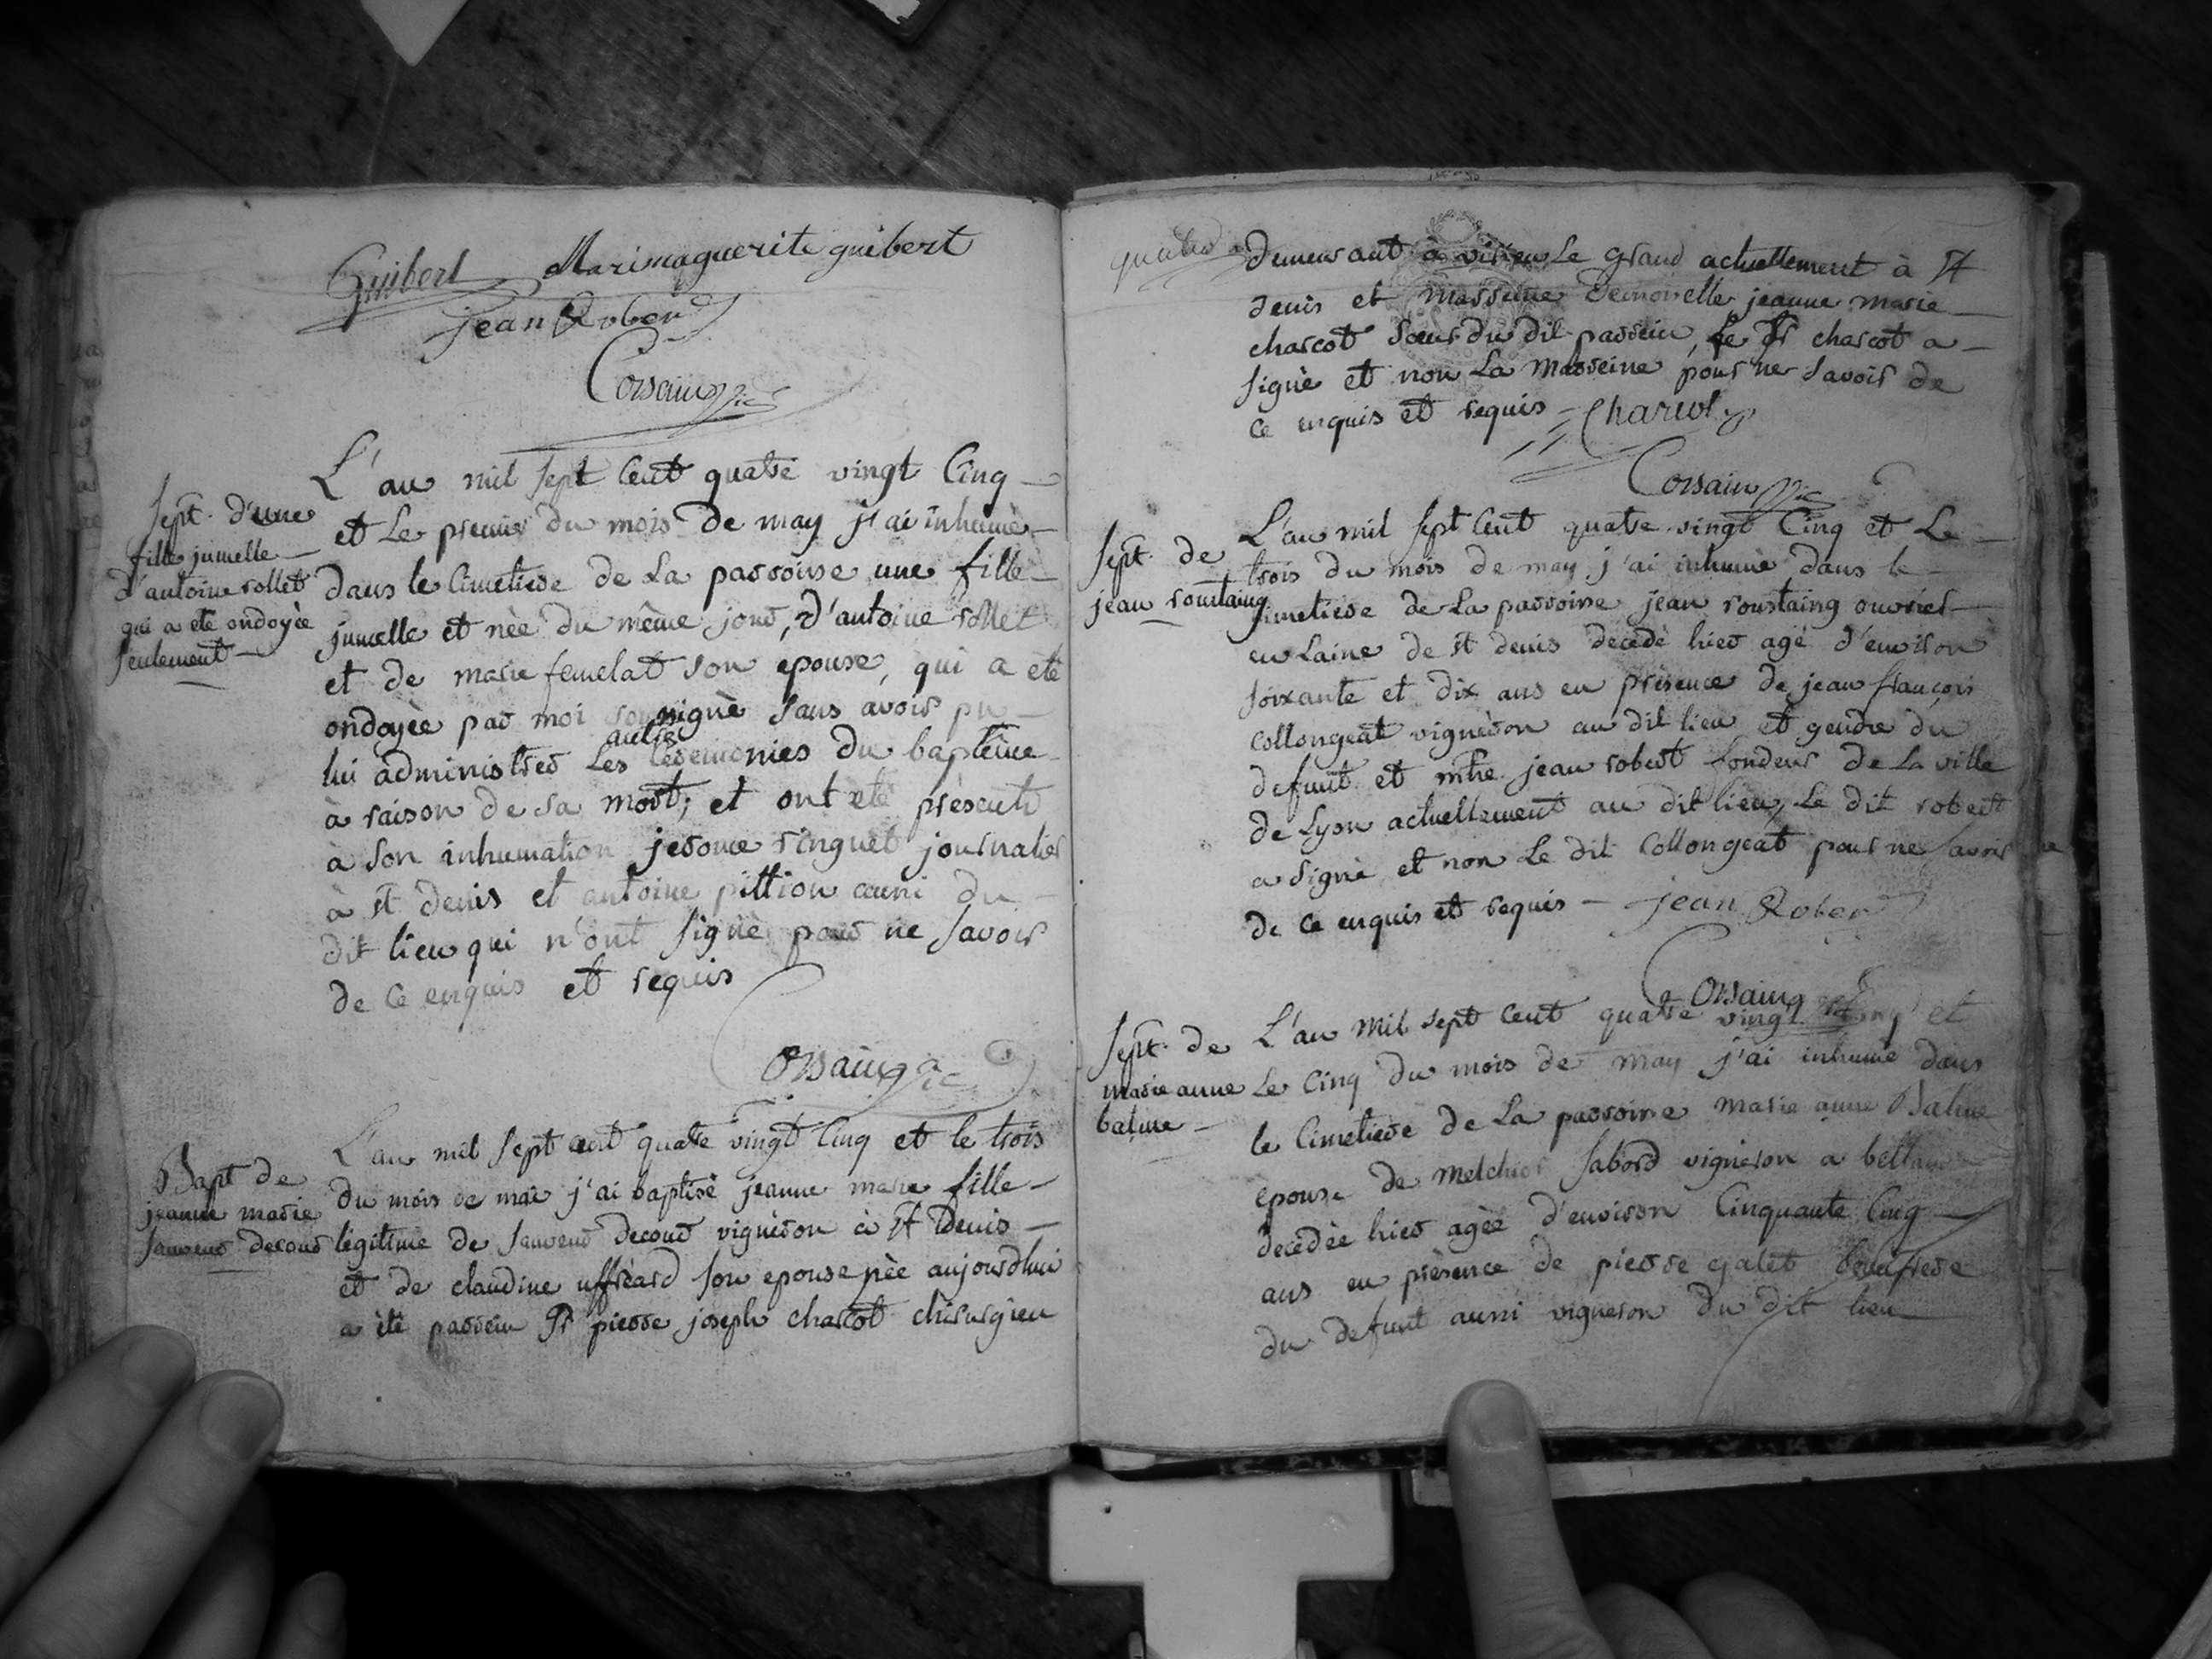 Guibert Marimaguerite guibert
jean Rober
Corsain vic
Sept. d'une
fille jumelle
d'antoine rollet
qui a eté ondoyée
seulement
L'an mil sept cent quatre vingt Cinq
et Le premier du mois de may j'ai inhumé
dans le Cimetiere de La parroisse une fille
jumelle et née du même jour, d'antoine rollet
et de marie femelat son epouse, qui a eté
ondoyée par moi soussigné sans avoir pu
autres
lui administrer Les Ceremonies du baptême
à raison de sa mort; et ont eté présents
a son inhumation jerome ringuet journalier
à st denis et antoine pittion aussi du
dit lieu qui n'ont signé pour ne savoir
de ce enquis et requis
Corsain vic
Bapt de
jeanne marie
decour
L'an mil sept cent quatre vingt Cinq et le trois
du mois de mai j'ai baptisé jeanne marie fille
légitime de decour vigneron à st Denis
et de claudine uffréard son epouse née aujourdhui
a été parrein Sr pierre joseph charcot chirurgien
demeurant à virieu Le grand actuellement à st
denis et marreine Demoiselle jeanne marie
charcot soeur du dit parrein, Le Sr charcot a
signé et non La marreine pour ne savoir de
ce enquis et requis - Charcot
Corsain vic
Sept. de
jean roustaing
L'an mil sept Cent quatre vingt Cinq et Le
trois du mois de may j'ai inhumé dans le
Cimetiere de La parroisse jean roustaing ouvrier
en Laine de st denis decedé hier agé d'environ
soixante et dix ans en présence de jean françois
collongeat vigneron au dit lieu et gendre du
defunt et mtre jean robert fondeur de La ville
de Lyon actuellement au dit lieu, Le dit robert
a signé et non Le dit Collongeat pour ne savoir
de ce enquis et requis - jean Rober
Corsain vic
Sept. de
marie anne
balme
L'an mil sept cent quatre vingt Cinq et
Le Cinq du mois de may j'ai inhumé dans
le Cimetiere de La parroisse marie anne Balme
epouse de melchior sabord vigneron a
decedée hier agée d'environ Cinquante Cinq
ans en présence de pierre galet beaufrere
du defunt aussi vigneron du dit lieu